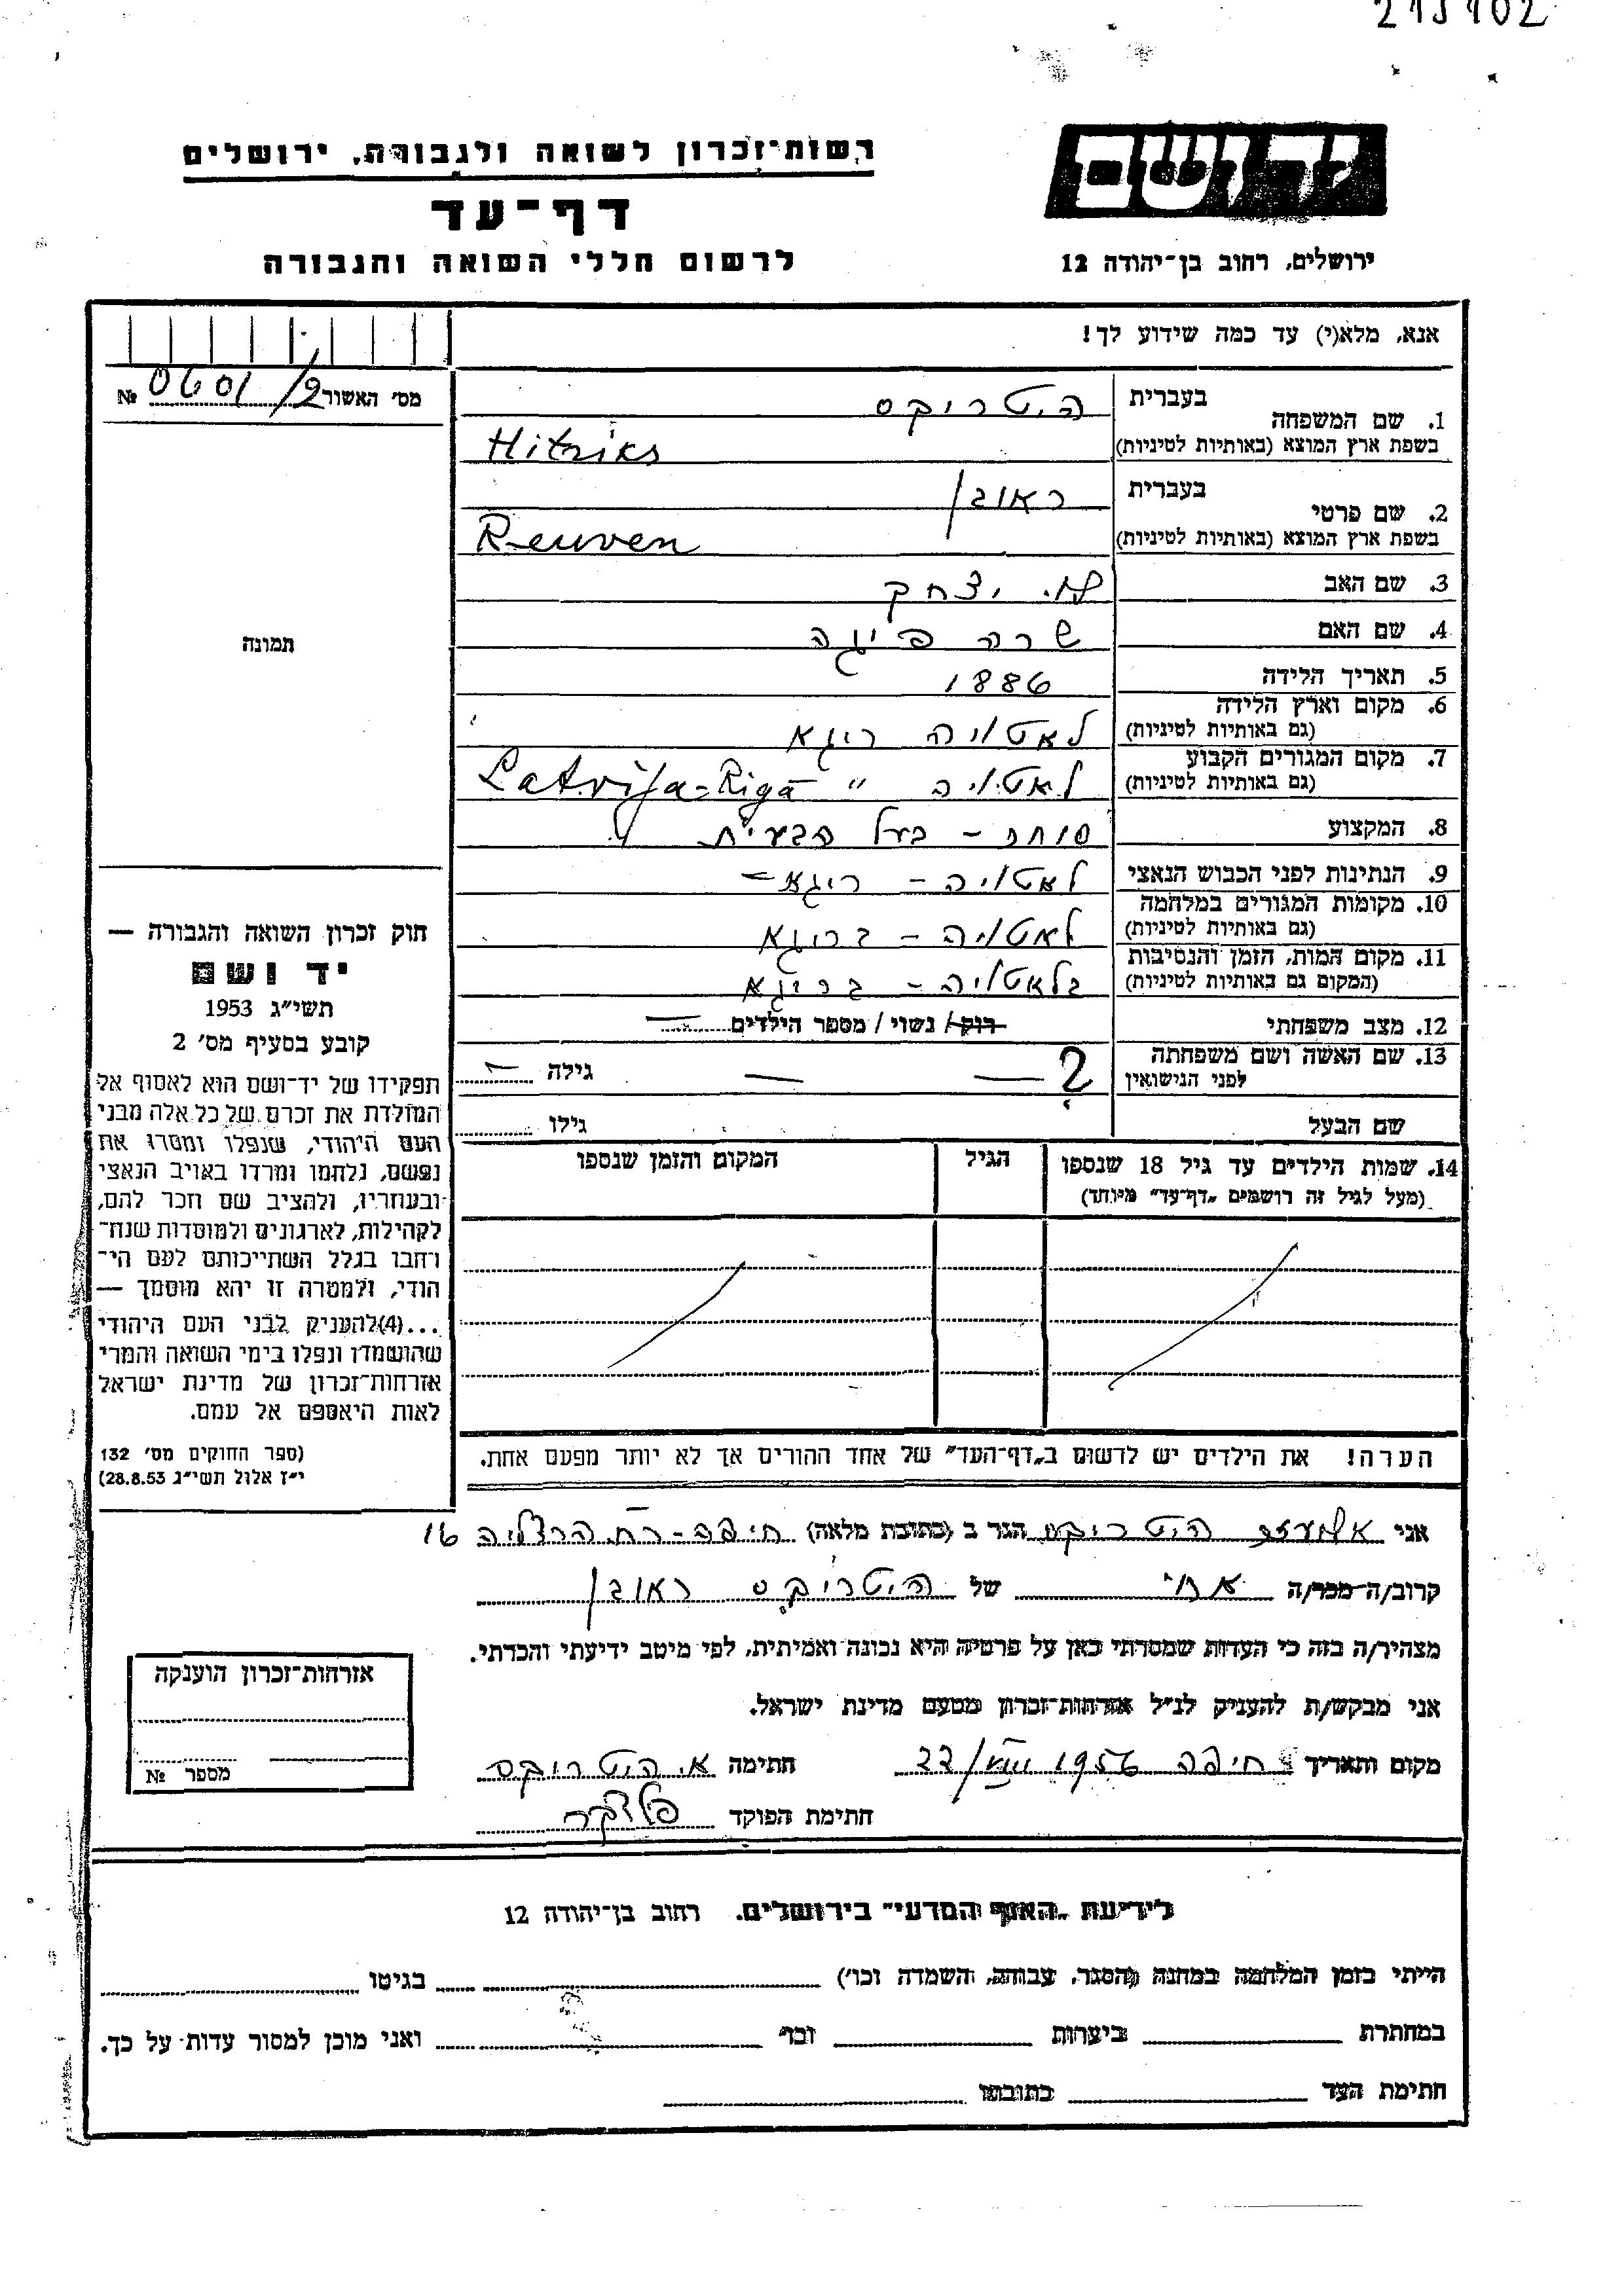 213102
רשות-זכרון לשואה ולגבורה, ירושלים
יד ושם
דף-עד
לרשום חללי השואה והגבורה
ירושלים, רחוב בן-יהודה 12
אנא, מלא(י) עד כמה שידוע לך!
מס' האשור 0601/2 №
1. שם המשפחה בעברית היטריקס
בשפת ארץ המוצא (באותיות לטיניות) Hitriks
2. שם פרטי בעברית ראובן
בשפת ארץ המוצא (באותיות לטיניות) Reuven
3. שם האב יצחק
4. שם האם שרה פיגה
5. תאריך הלידה 1886
6. מקום וארץ הלידה לאטויה ריגא
(גם באותיות לטיניות)
7. מקום המגורים הקבוע לאטויה " Latvija-Rīga
(גם באותיות לטיניות)
8. המקצוע סוחר - בעל הבית
9. הנתינות לפני הכבוש הנאצי לאטויה - ריגא -
10. מקומות המגורים במלחמה
(גם באותיות לטיניות) לאטויה - בריגא
11. מקום המות, הזמן והנסיבות
(המקום גם באותיות לטיניות) בלאטויה - בריגא
12. מצב משפחתי רוק / נשוי / מספר הילדים —
13. שם האשה ושם משפחתה
לפני הנישואין ? — — גילה —
שם הבעל גילו
14. שמות הילדים עד גיל 18 שנספו
(מעל לגיל זה רושמים "דף-עד" מיוחד)
הגיל
המקום והזמן שנספו
הערה! את הילדים יש לרשום ב"דף-העד" של אחד ההורים אך לא יותר מפעם אחת.
תמונה
חוק זכרון השואה והגבורה —
יד ושם
תשי"ג 1953
קובע בסעיף מס' 2
תפקידו של יד-ושם הוא לאסוף אל
המולדת את זכרם של כל אלה מבני
העם היהודי, שנפלו ומסרו את
נפשם, נלחמו ומרדו באויב הנאצי
ובעוזריו, ולהציב שם וזכר להם,
לקהילות, לארגונים ולמוסדות שנח-
רחבו בגלל השתייכותם לעם הי-
הודי, ולמטרה זו יהא מוסמך —
...(4)להעניק לבני העם היהודי
שהושמדו ונפלו בימי השואה והמרי
אזרחות-זכרון של מדינת ישראל
לאות היאספם אל עמם.
(ספר החוקים מס' 132
י"ז אלול תשי"ג 28.8.53)
אני היטריקס הגר ב (כתובת מלאה) חיפה - רח הרצליה 16
קרוב/ה מכר/ה אחי של היטריקס ראובן
מצהיר/ה בזה כי העדות שמסרתי כאן על פרטיה היא נכונה ואמיתית, לפי מיטב ידיעתי והכרתי.
אני מבקש/ת להעניק לנ"ל אזרחות-זכרון מטעם מדינת ישראל.
מקום ותאריך חיפה 22/VIII 1956 חתימה א. היטריקס
חתימת הפוקד
אזרחות-זכרון הוענקה
מספר №
לידיעת "האגף המדעי" בירושלים, רחוב בן-יהודה 12
הייתי בזמן המלחמה במחנה (הסגר, עבודה, השמדה וכו') בגיטו
במחתרת ביערות וכו' ואני מוכן למסור עדות על כך.
חתימת העד כתובתו